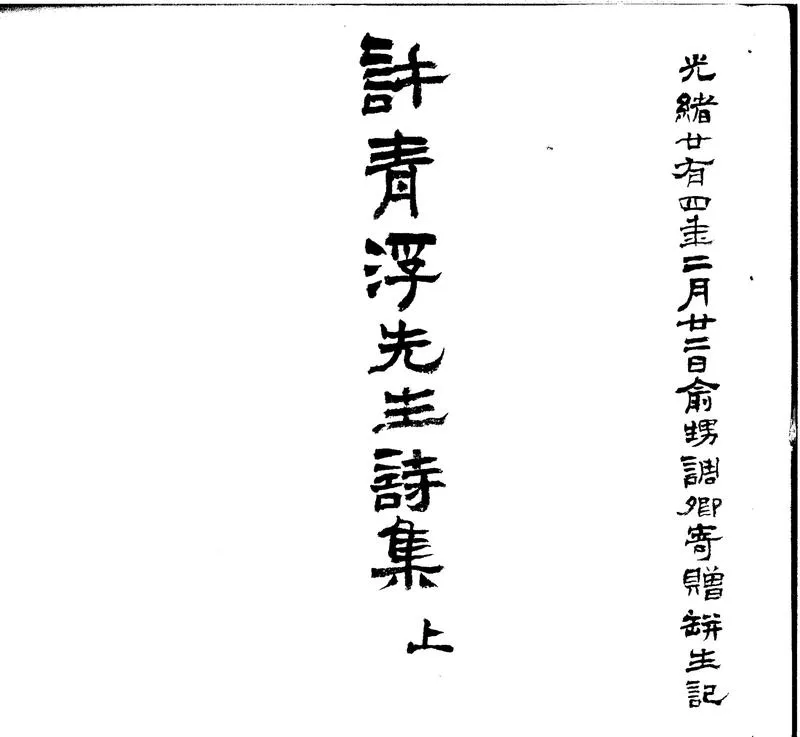 光緒廿有四年二月廿二日俞甥調卿寄贈缾生記
許青浮先生詩集 上